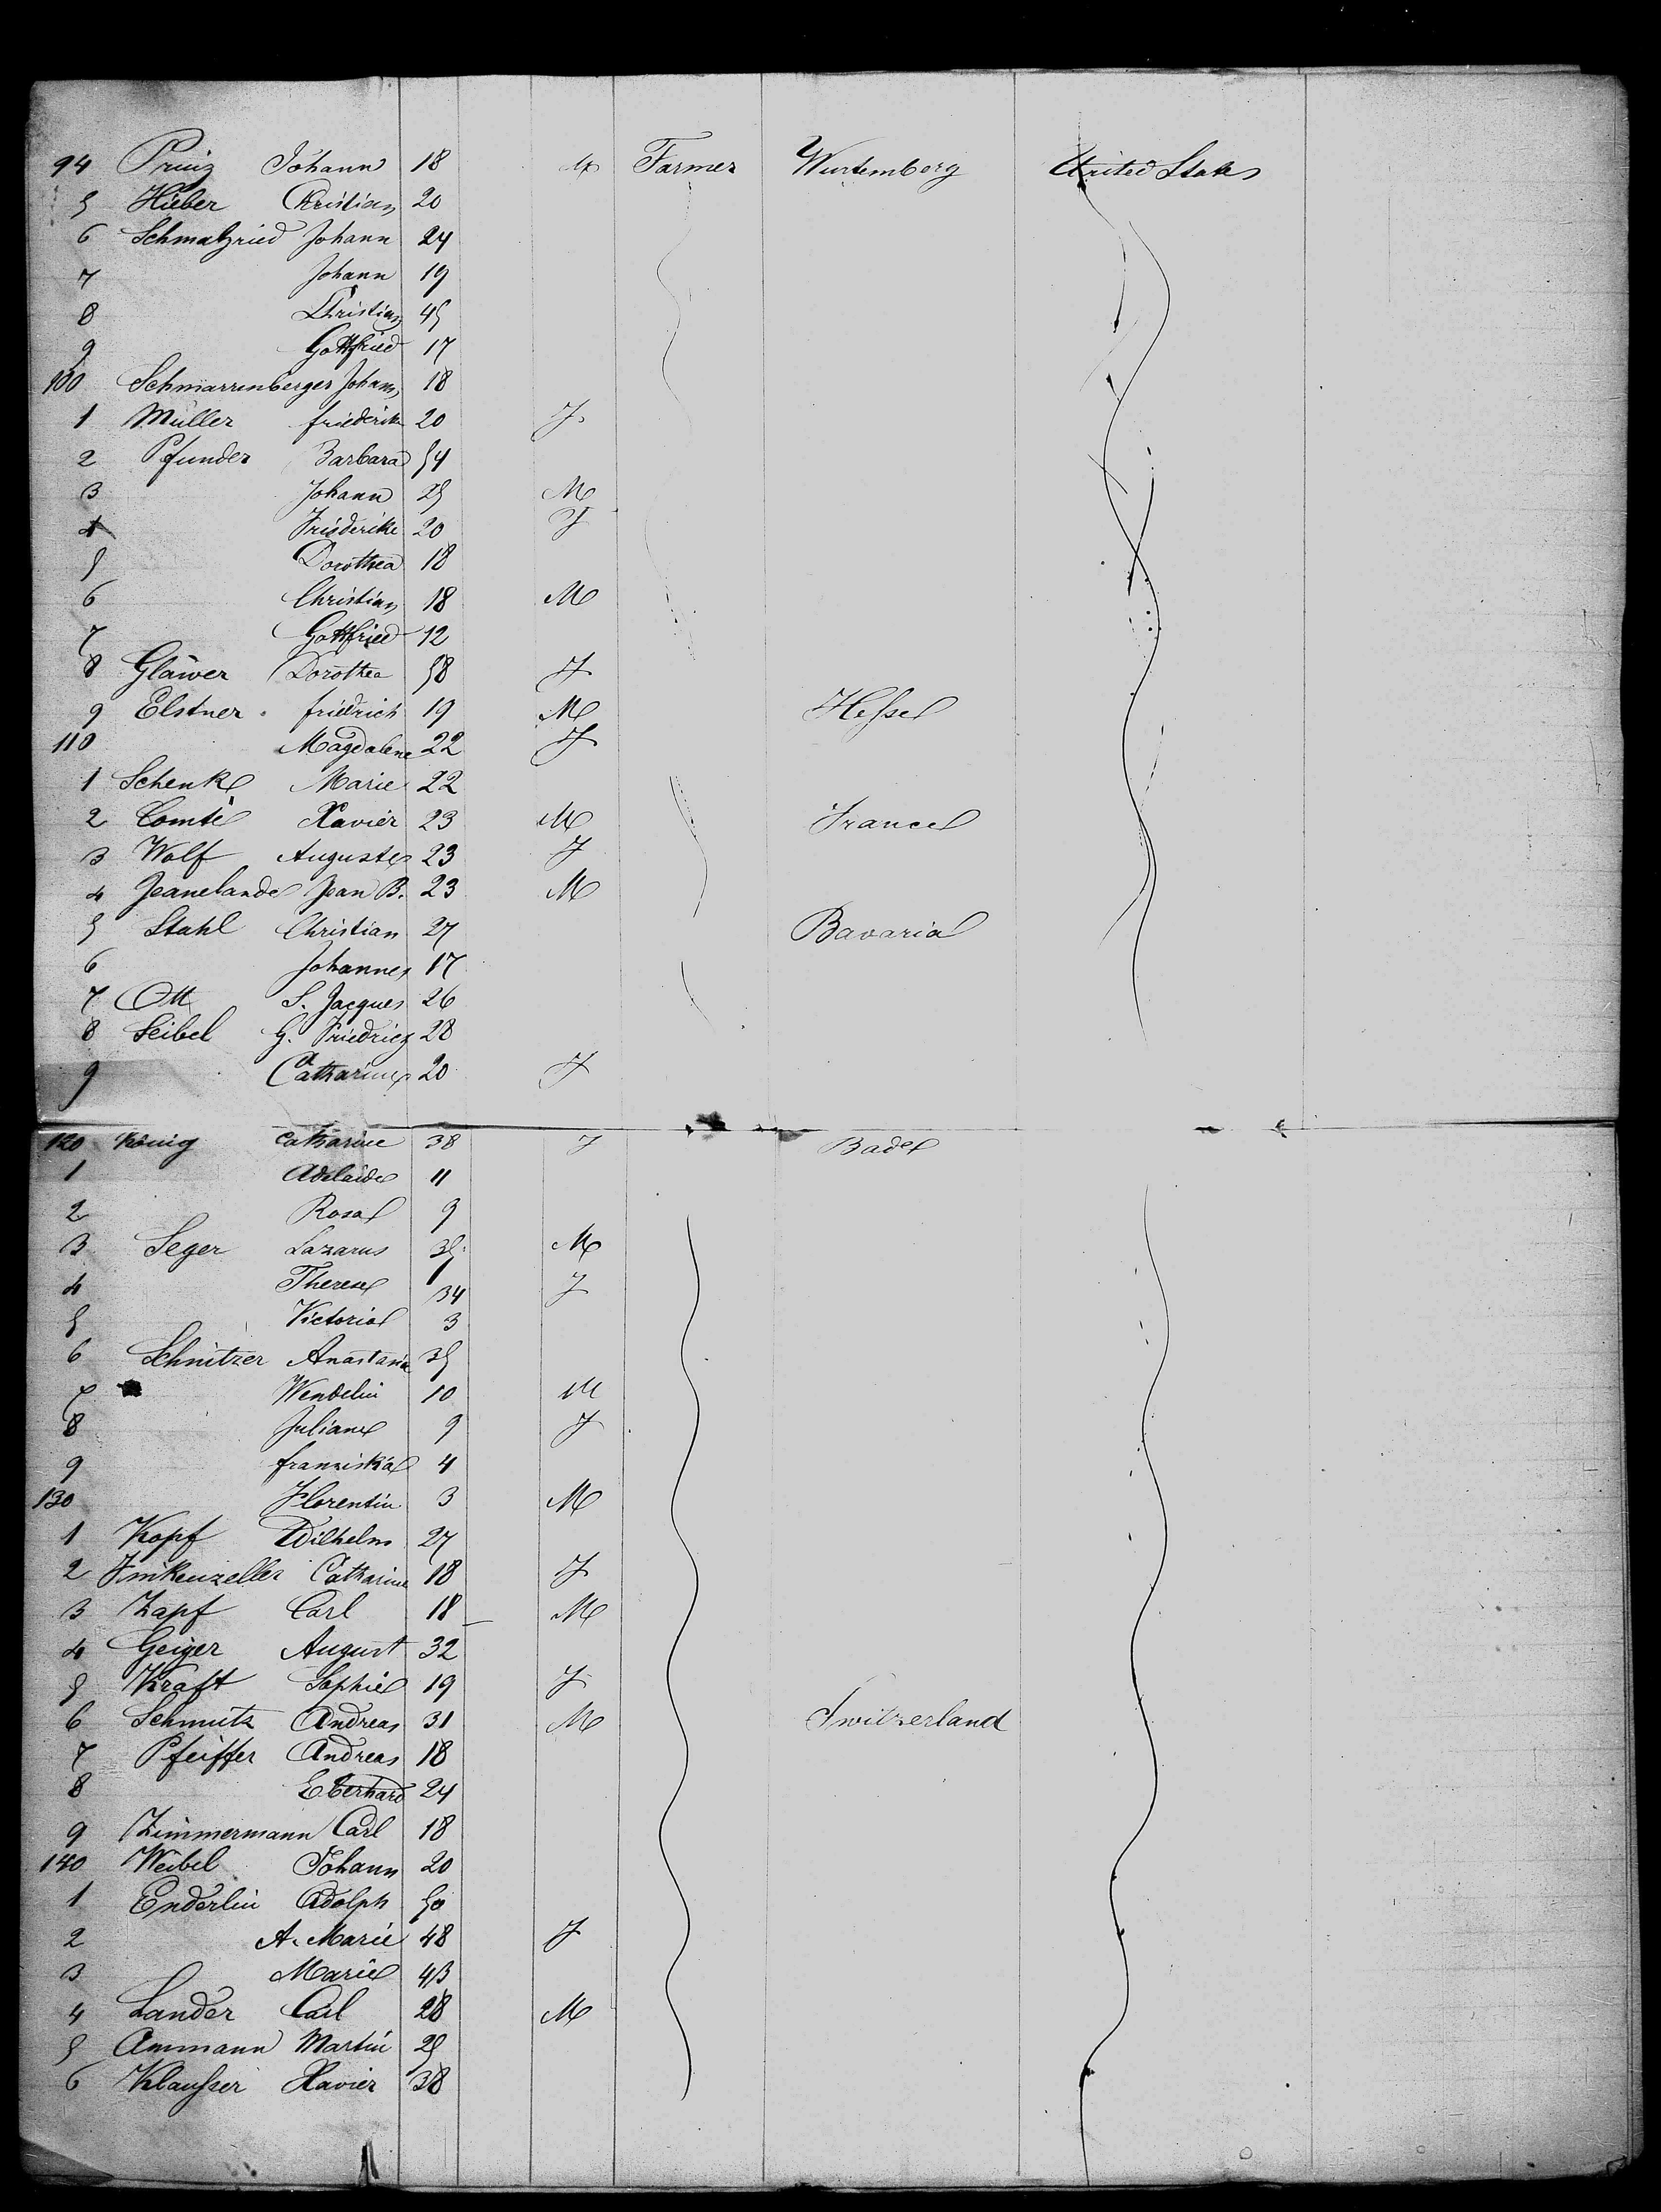 94 Prinz Johann 18 M Farmer Wurtemberg United States
5 Hieber Christian 20
6 Schmalzried Johann 24
7 Johann 19
8 Christian 45
9 Gottfried 17
100 Schmarrenberger Johann 18
1 Müller friederike 20 F
2 Pfunder Barbara 54
3 Johann 25 M
4 Friederike 20 F
5 Dorothea 18
6 Christian 18 M
7 Gottfried 12
8 Gläwer Dorothea 58 F
9 Elstner friedrich 19 M Hessel
110 Magdalene 22 F
1 Schenk Marie 22
2 Comte Xavier 23 M France
3 Wolf Auguste 23 F
4 Jeanelande Jean B. 23 M
5 Stahl Christian 27 Bavaria
6 Johannes 17
7 Ott S. Jacques 26
8 Seibel G. Friedrich 28
9 Catharine 20 F
120 König Catharine 38 F Bade
1 Adelaide 11
2 Rosa 9
3 Seger Lazarus 35 M
4 Therese 34 F
5 Victoria 3
6 Schnitzer Anastasia 35
7 Wendelin 10 M
8 Juliane 9 F
9 franziska 4
130 Florentin 3 M
1 Kopf Wilhelm 27
2 Finkenzeller Catharine 18 F
3 Zapf Carl 18 M
4 Geiger August 32
5 Kraft Sophie 19 F
6 Schmutz Andreas 31 M Switzerland
7 Pfeiffer Andreas 18
8 Eberhard 24
9 Zimmermann Carl 18
140 Weibel Johann 20
1 Enderlin Adolph 50
2 A. Marie 48 F
3 Marie 43
4 Lander Carl 28 M
5 Ammann Martin 25
6 Klausser Xavier 38